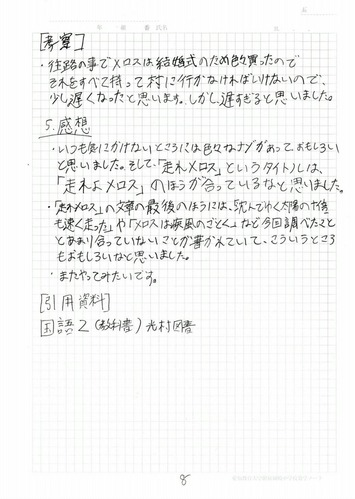 [考察]
・往路の事でメロスは結婚式のため色々買ったので
それをすべて持って村に行かなければいけないので、
少し遅くなったと思います。しかし、遅すぎると思いました。
5.感想
・いつも気にかけないところには色々なナゾがあって、おもしろい
と思いました。そして、「走れメロス」というタイトルは、
「走れよメロス」のほうが合っているなと思いました。
・「走れメロス」の文章の最後のほうには、沈んでゆく太陽の十倍
も速く走った」や「メロスは疾風のごとく」など今回調べたこと
とあまり合っていないことが書かれていて、こういうところ
もおもしろいなと思いました。
・またやってみたいです。
[引用資料]
国語2(教科書)光村図書
8